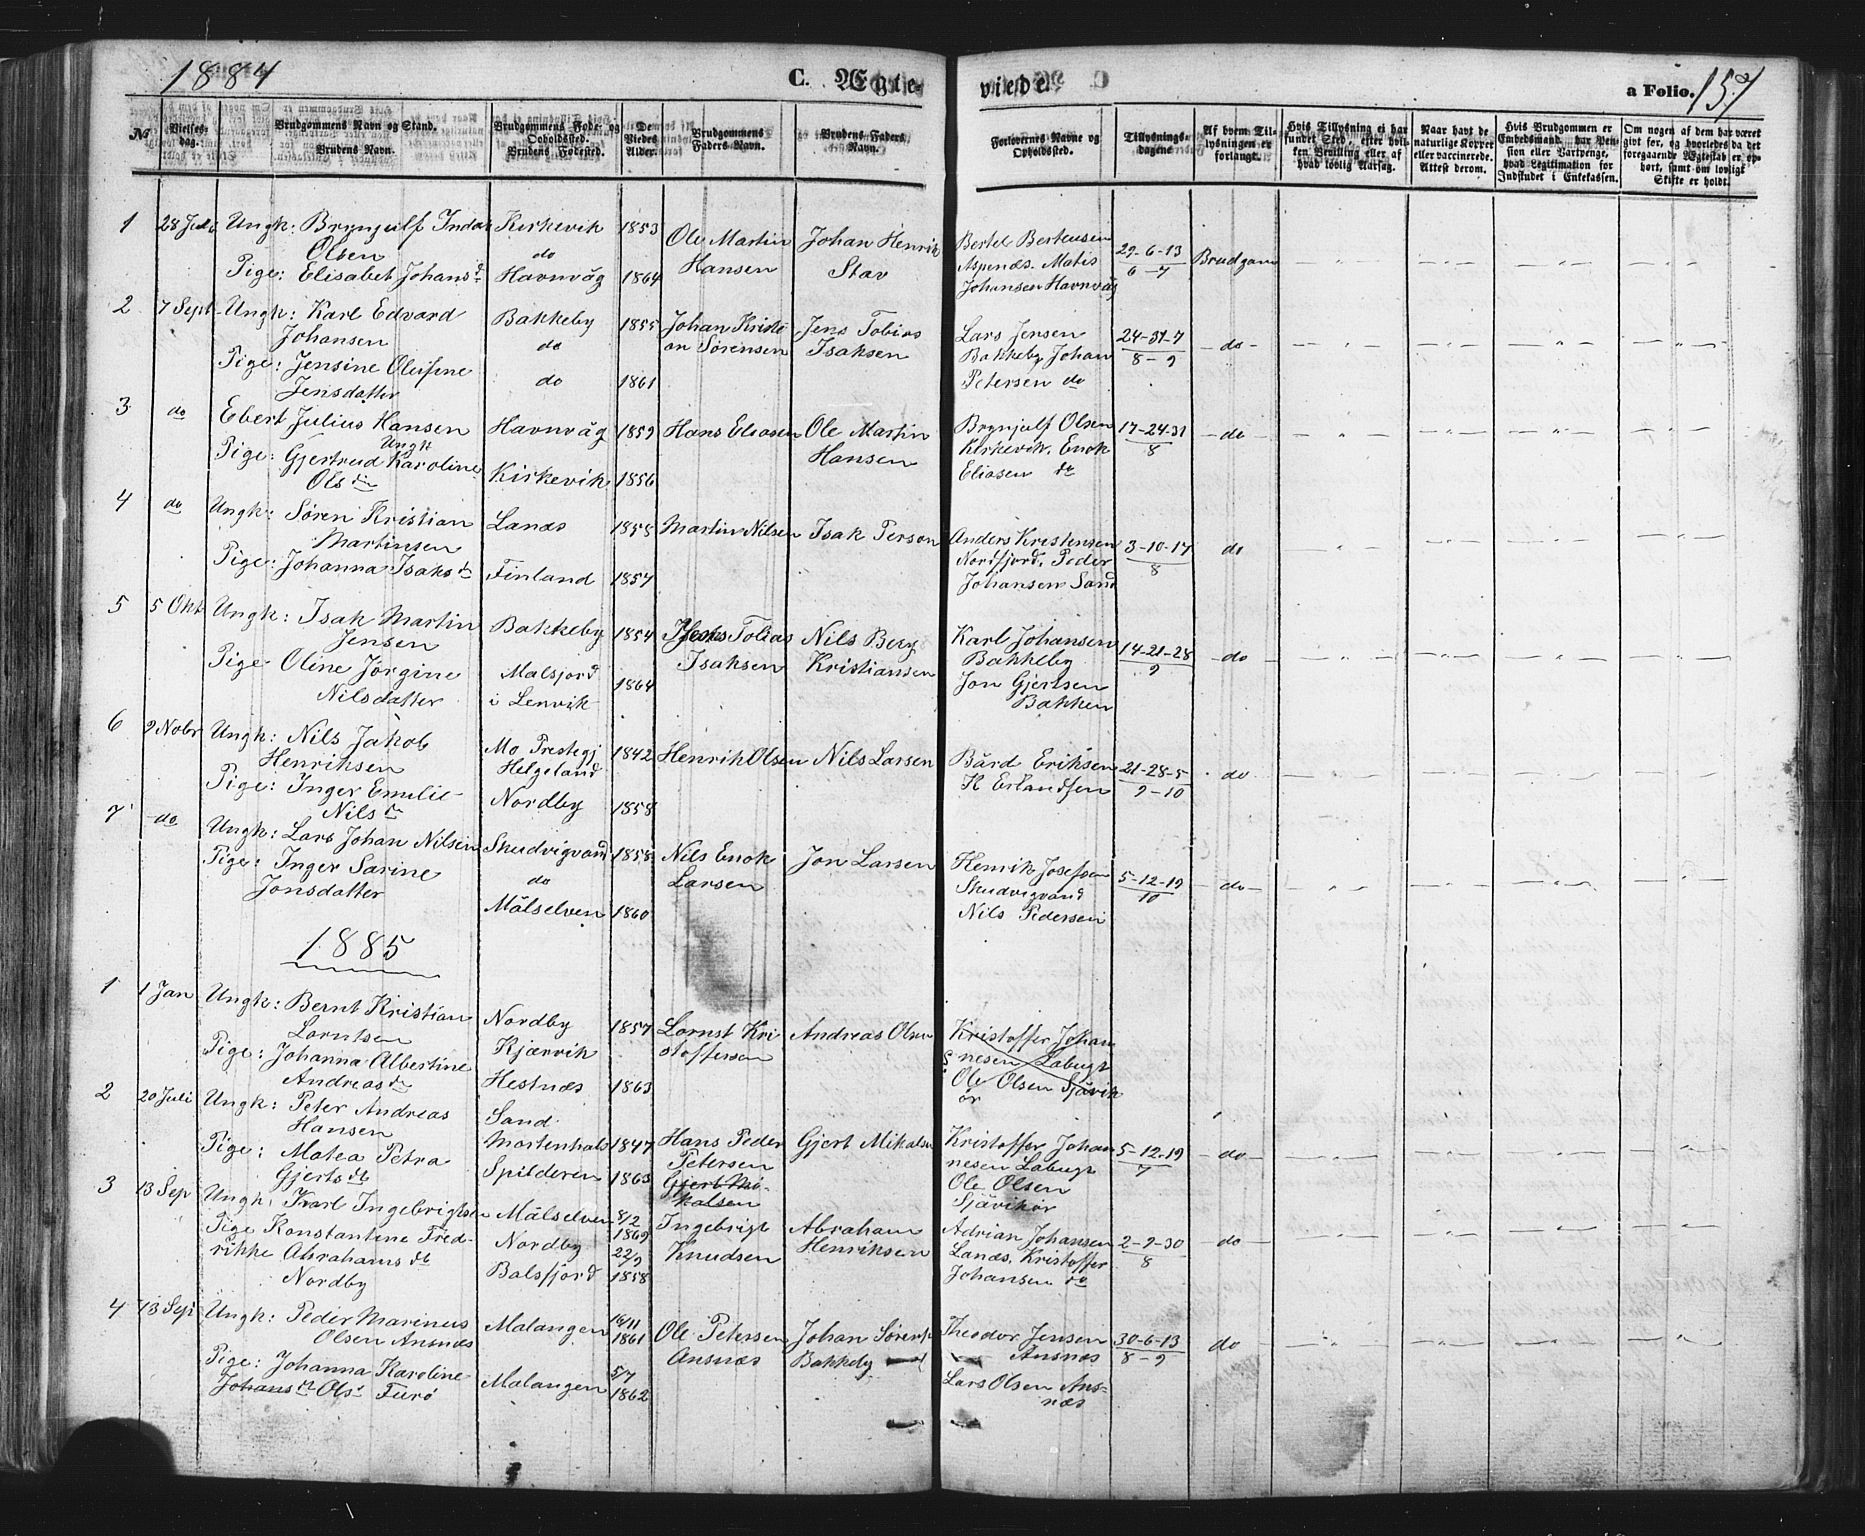 1884
C. Ægte-
viede.
a Folio. 157
№
Vielses-
dag.
Brudgommens Navn og Stand.
Brudens Navn.
Brudgommens Føde- og
Opholdssted.
Brudens Fødested.
De
Viedes
Alder.
Brudgommens
Faders Navn.
Brudens Faders
Navn.
Forlovernes Navne og
Opholdssted.
Tillysnings-
dagene
Af hvem Til-
lysningen er
forlangt.
Hvis Tillysning ei har
fundet Sted efter hvil-
ken Bevilling eller af
hvad lovlig Aarsag.
Naar havt de
naturlige Kopper
eller vaccinerede.
Attest derom.
Hvis Brudgommen er
Embedsmand, har Pen-
sion eller Vartpenge,
hvad Legitimation for
Indskudet i Enkekassen.
Om nogen af dem har været
gift før, og hvorledes da det
foregaaende Ægteskab er op-
hørt, samt om lovligt
Skifte er holdt.
1 28 Juli Ungk: Brynjulf Indal Kirkevik 1853 Ole Martin Johan Henrik Bertel Berteusen 29-6-13 Brudgom
Olsen do Hansen Stav Aspenes. Matis 6-7
Pige: Elisabet Johansd Havnvåg 1864 Johansen Havnvåg
2 7 Sept Ungk: Karl Edvard Bakkeby 1855 Johan Kristi- Jens Tobias Lars Jensen 24-31-7 do
Johansen do an Sørensen Isaksen Bakkeby, Johan 8-9
Pige: Jensine Olufine do 1861 Petersen do
Jensdatter
3 do Ebert Julius Hansen Havnvåg 1859 Hans Eliasen Ole Martin Brynjulf Olsen 17-24-31 do
Ungk Hansen Kirkevik, Enok 8
Pige: Gjertrud Karoline Kirkevik 1856 Eliasen do
Olsdtr
4 do Ungk: Søren Kristian Lanæs 1858 Martin Nilsen Isak Person Anders Kristensen 3-10-17 do
Martinsen Nordfjord, Peder 8
Pige: Johanna Isaksdr Finland 1857 Johansen Sand
5 5 Okt Ungk: Isak Martin Bakkeby 1854 Jens Tobias Nils Berg Karl Johansen 14-21-28 do
Jensen Isaksen Kristiansen Bakkeby 9
Pige Oline Jørgine Malsjord 1864 Jon Gjertsen
Nilsdatter i Lenvik Bakken
6 9 Nobr Ungk: Nils Jakob Mo Prestegj 1842 Henrik Olsen Nils Larsen Bård Eriksen 21-28-5 do
Henriksen Helgeland K Erlandsen 9-10
Pige: Inger Emilie Nordby 1858
Nilsdr
7 do Ungk: Lars Johan Nilsen Skudvigvand 1858 Nils Enok Jon Larsen Henrik Josefsen 5-12-19 do
Pige: Inger Sarine do Larsen Skudvigvand 10
Jonsdatter Målselven 1860 Nils Pedersen
1885
1 1 Jan Ungk: Bernt Kristian Nordby 1857 Lornst Kri- Andreas Olsen Kristoffer Johan
Lorntsen Kjærvik stoffersen nesen Labugt
Pige: Johanna Albertine Hestnæs 1863 Ole Olsen Sjåvik
Andreasdr ør
2 20 Juli Ungk: Peter Andreas Sand
Hansen Mortenhals 1847 Hans Peder Gjert Mikalsen Kristoffer Johan 5-12-19 do
Pige: Matea Petra Spilderen 1863 Petersen nesen Labugt 7
Gjertsdt Gjert Mi- Ole Olsen
kalsen Sjåvikør
3 13 Sep Ungk: Karl Ingebrigtsen Målselven 8/2 Ingebrigt Abraham Adrian Johansen 2-9-30 do
1869 Knudsen Henriksen Lanæs, Kristoffer 8
Pige Konstantine Fred- Nordby 22/9 Johansen do
rikke Abrahamsdt Balsfjord 1858
Nordby
4 13 Sep Ungk: Peder Marinus Malangen 16/11 Ole Petersen Johan Sørens Theodor Jensen 30-6-13 do
Olsen Ansnæs 1861 Ansnæs Bakkeby Ansnæs 8-9
Pige: Johanna Karoline Malangen 5/7 Lars Olsen Ans-
Johansdt Ols Furø 1862 næs